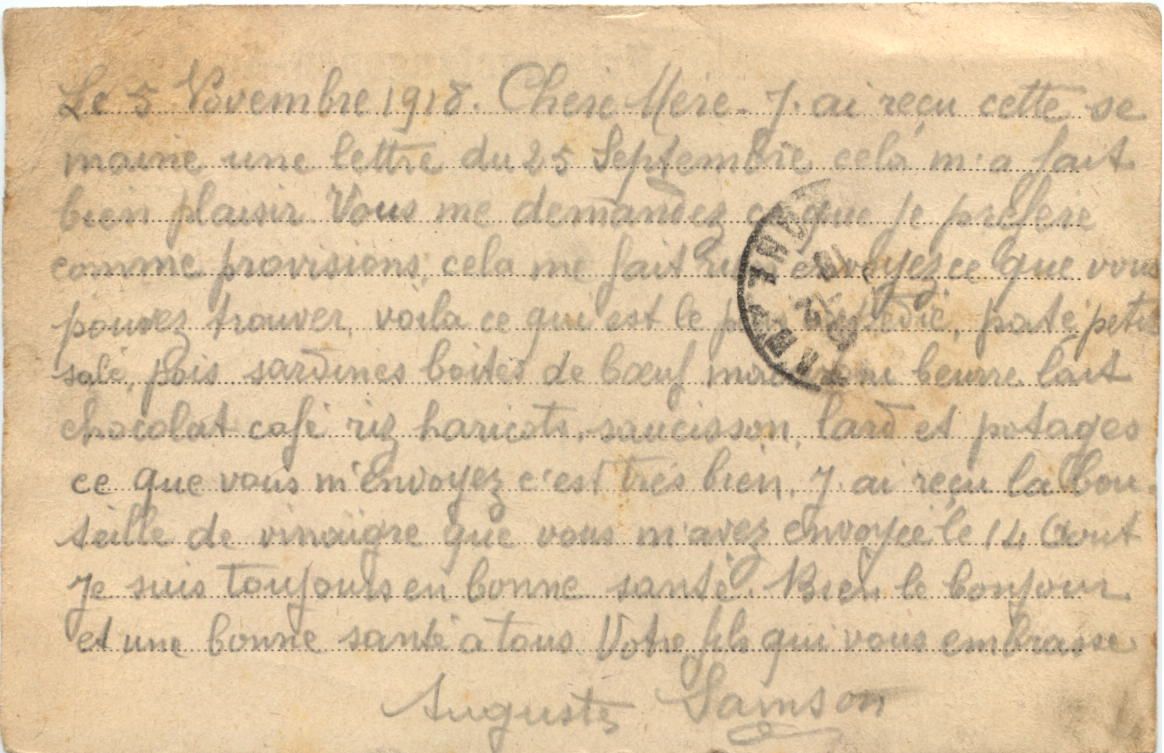 Le 5 Novembre 1918. Chere Mére. J. ai reçu cette se
maine une lettre du 25 Septembre cela m'a fait
bien plaisir. Vous me demandez ce que je préfere
comme provisions, cela me fait rien envoyez ce que vous
pouvez trouver, voila ce qui est le paté petit
salé, pois sardines boites de bœuf beurre, lait
chocolat café riz haricots, saucisson, lard et potages
ce que vous m'envoyez c'est trés bien. J. ai reçu la bou-
teille de vinaigre que vous m'avez envoyée le 14 Aout
Je suis toujours en bonne santé. Bien le bonjour
et une bonne santé a tous Votre fils qui vous embrasse
Auguste Samson